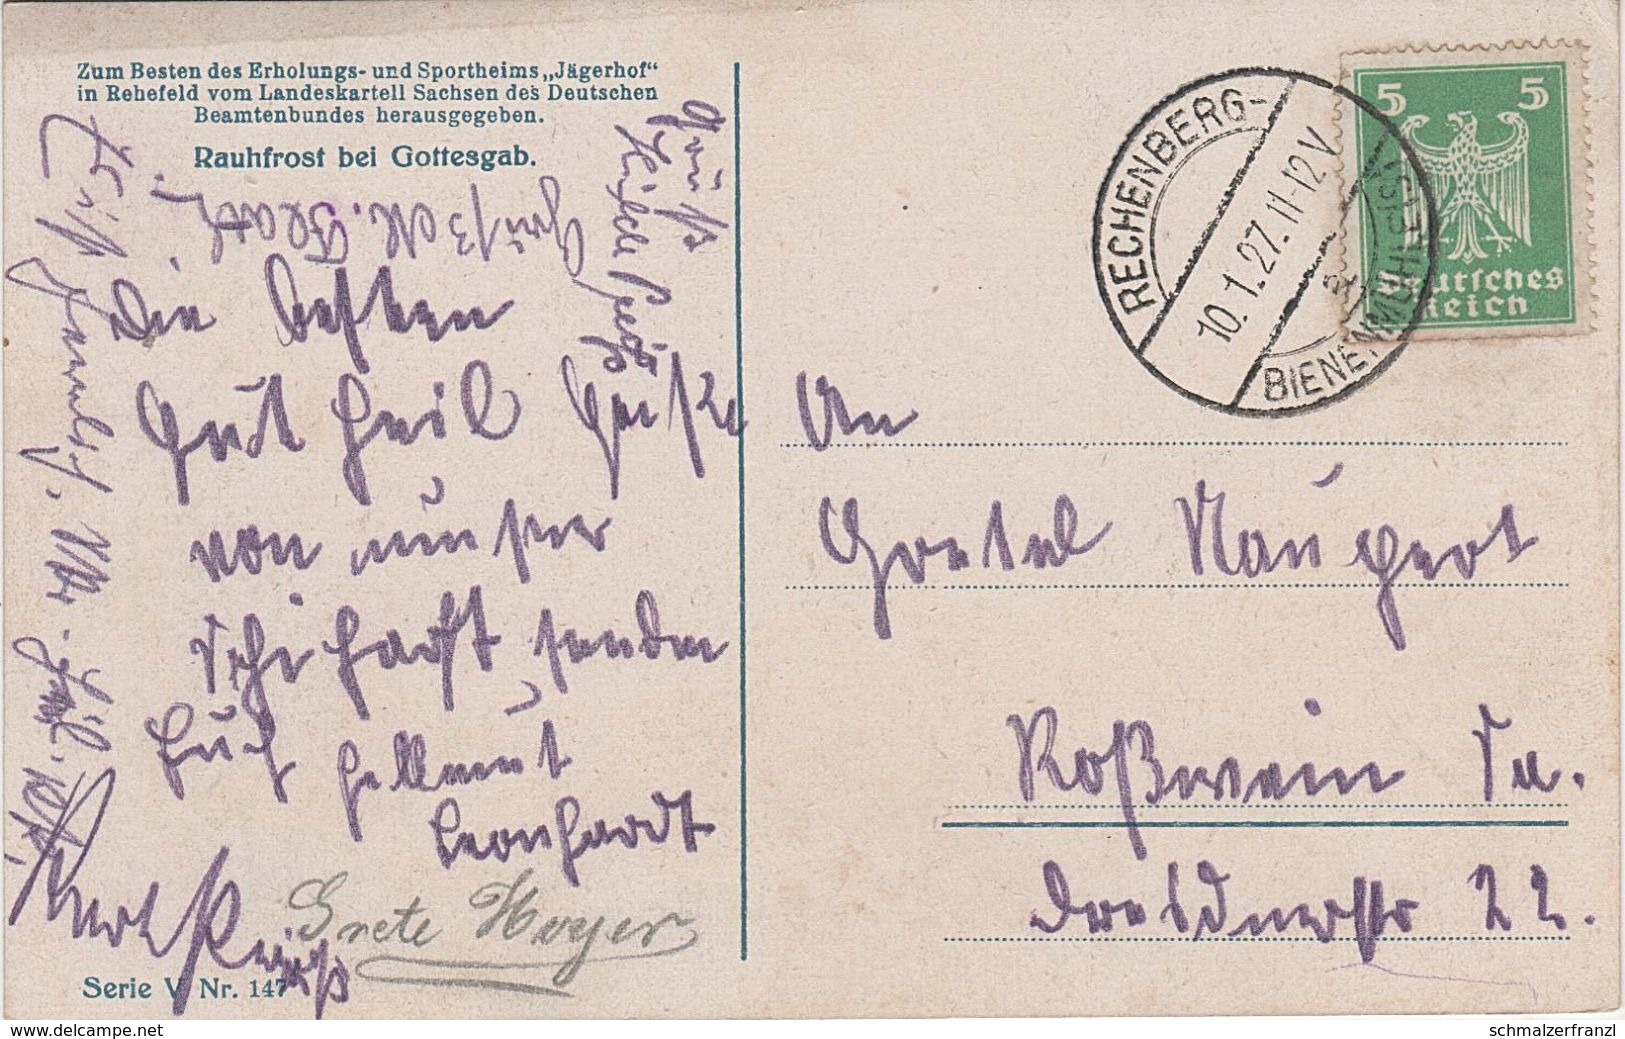 Zum Besten des Erholungs- und Sportheims „Jägerhof“
in Rehefeld vom Landeskartell Sachsen des Deutschen
Beamtenbundes herausgegeben.
Rauhfrost bei Gottesgab.
Die besten
Gut Heil Grüße
von unser
Schifahrt senden
Euch Hellmut
Leonhardt
Grete Hoyer
Gruß
Hilde
Gruß M.
Kurt
Serie V Nr. 147
RECHENBERG-
10.1.27.11-12V
BIENENMÜHLE
5 5
Deutsches
Reich
An
Gretel Naupert
Roßwein Sa.
Dresdnerstr 22.
delcampe.net
schmalzerfranzl